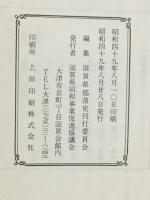 昭和四十九年八月一〇日印刷
昭和四十九年八月廿八日発行
編集 滋賀県部落史刊行委員会
発行者 滋賀県同和事業促進協議会
大津市京町
滋賀会館内
TEL大津
印刷所 上田印刷株式会社